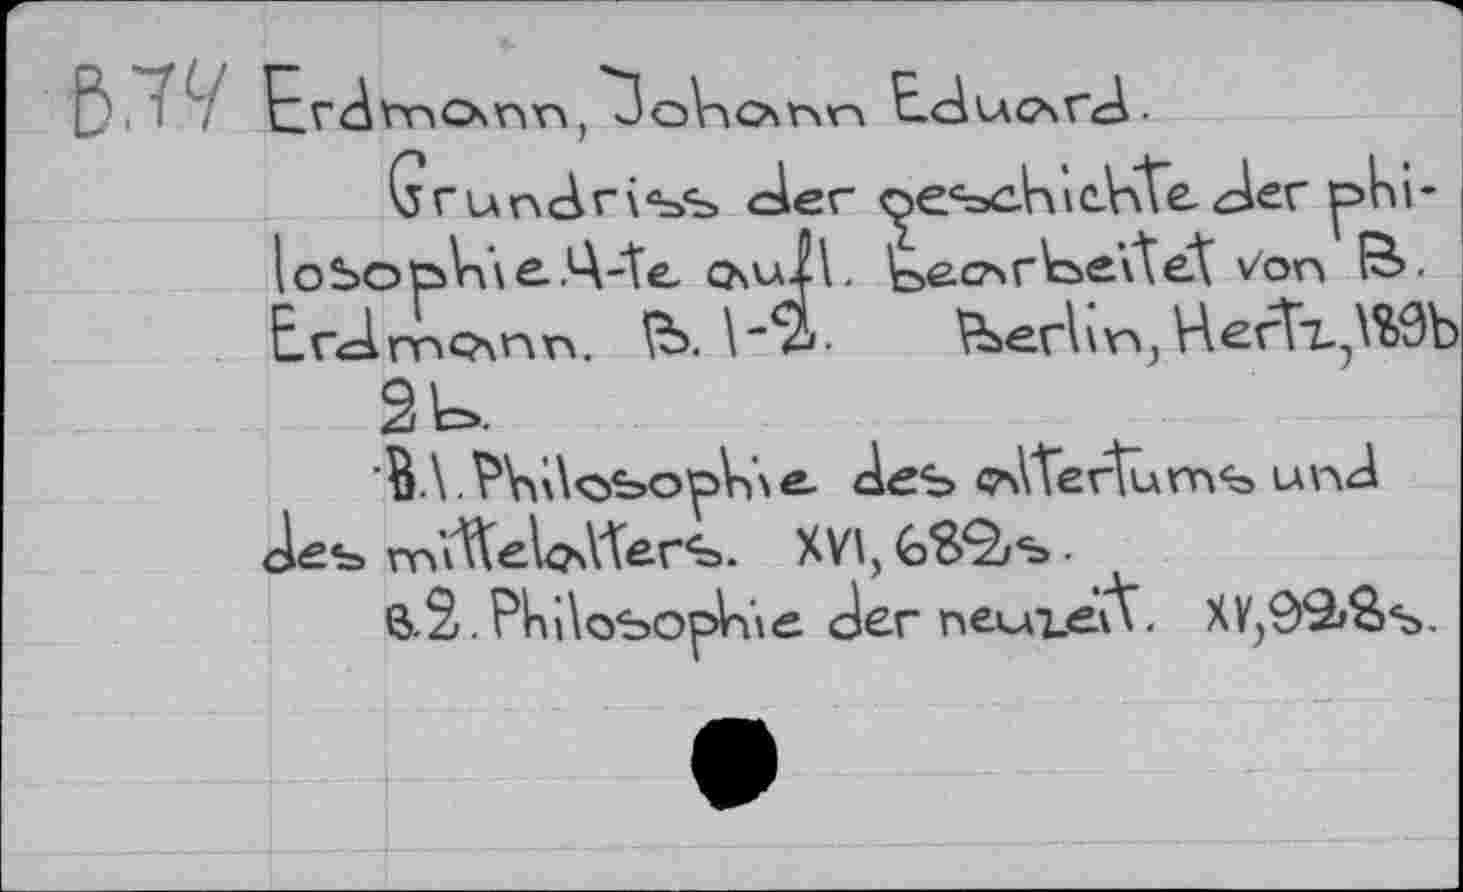 B.74 Erdmann, Johann Eduard.
Grundriss der geschichte der phi-
losophie.4-te aufl. bearbeitet von B.
Erdmann. B. 1-2. Berlin, Hertz, 1896
2 b.
B.1. Philosophie des altertums und
des mittelalters. XVI, 682 s.
B.2. Philosophie der neuzeit. XV, 928 s.